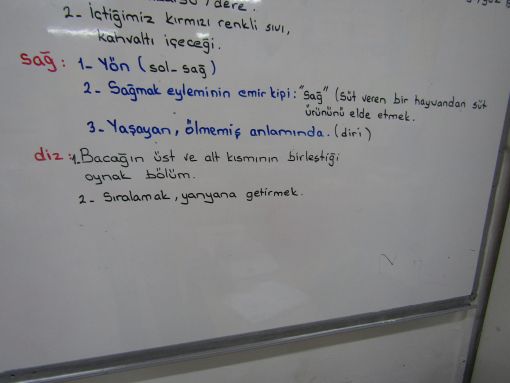 / dere.
2- İçtiğimiz kırmızı renkli sıvı,
kahvaltı içeceği.
sağ: 1- Yön (sol-sağ)
2- Sağmak eyleminin emir kipi: "sağ" (süt veren bir hayvandan süt
ürününü elde etmek.
3- Yaşayan, ölmemiş anlamında. (diri)
diz: 1. Bacağın üst ve alt kısmının birleştiği
oynak bölüm.
2- Sıralamak, yanyana getirmek.